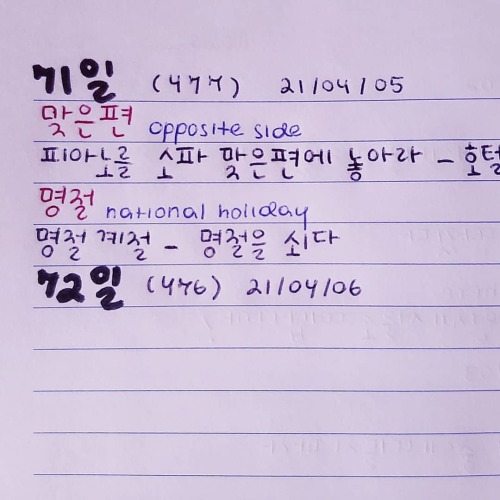 71일 (477) 21/04/05
맞은편 opposite side
피아노를 소파 맞은편에 놓아라 -
명절 national holiday
명절 계절 - 명절을 쇠다
72일 (476) 21/04/06